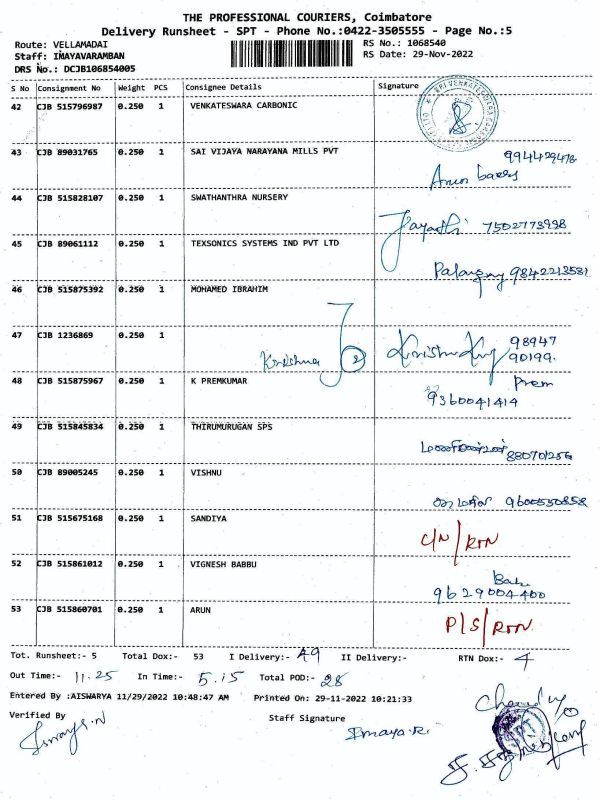 THE PROFESSIONAL COURIERS, Coimbatore
Delivery Runsheet - SPT - Phone No.:0422-3505555 - Page No.:5
Route: VELLAMADAI RS No.: 1068540
Staff: IMAYAVARAMBAN RS Date: 29-Nov-2022
DRS No.: DCJB106854005
S No Consignment No Weight PCS Consignee Details Signature
42 CJB 515796987 0.250 1 VENKATESWARA CARBONIC
43 CJB 89031765 0.250 1 SAI VIJAYA NARAYANA MILLS PVT
Arun
44 CJB 515828107 0.250 1 SWATHANTHRA NURSERY
7502773998
45 CJB 89061112 0.250 1 TEXSONICS SYSTEMS IND PVT LTD
9842213581
46 CJB 515875392 0.250 1 MOHAMED IBRAHIM
47 CJB 1236869 0.250 1
Krishna 98947
90199
48 CJB 515875967 0.250 1 K PREMKUMAR Prem
9360041414
49 CJB 515845834 0.250 1 THIRUMURUGAN SPS
50 CJB 89005245 0.250 1 VISHNU
9600550858
51 CJB 515675168 0.250 1 SANDIYA
C/N/RTN
52 CJB 515861012 0.250 1 VIGNESH BABBU
9629004400
53 CJB 515860701 0.250 1 ARUN
P/S/RTN
Tot. Runsheet:- 5 Total Dox:- 53 I Delivery:- 49 II Delivery:- RTN Dox:- 4
Out Time:- 11.25 In Time:- 5.15 Total POD:- 28
Entered By :AISWARYA 11/29/2022 10:48:47 AM Printed On: 29-11-2022 10:21:33
Verified By Staff Signature